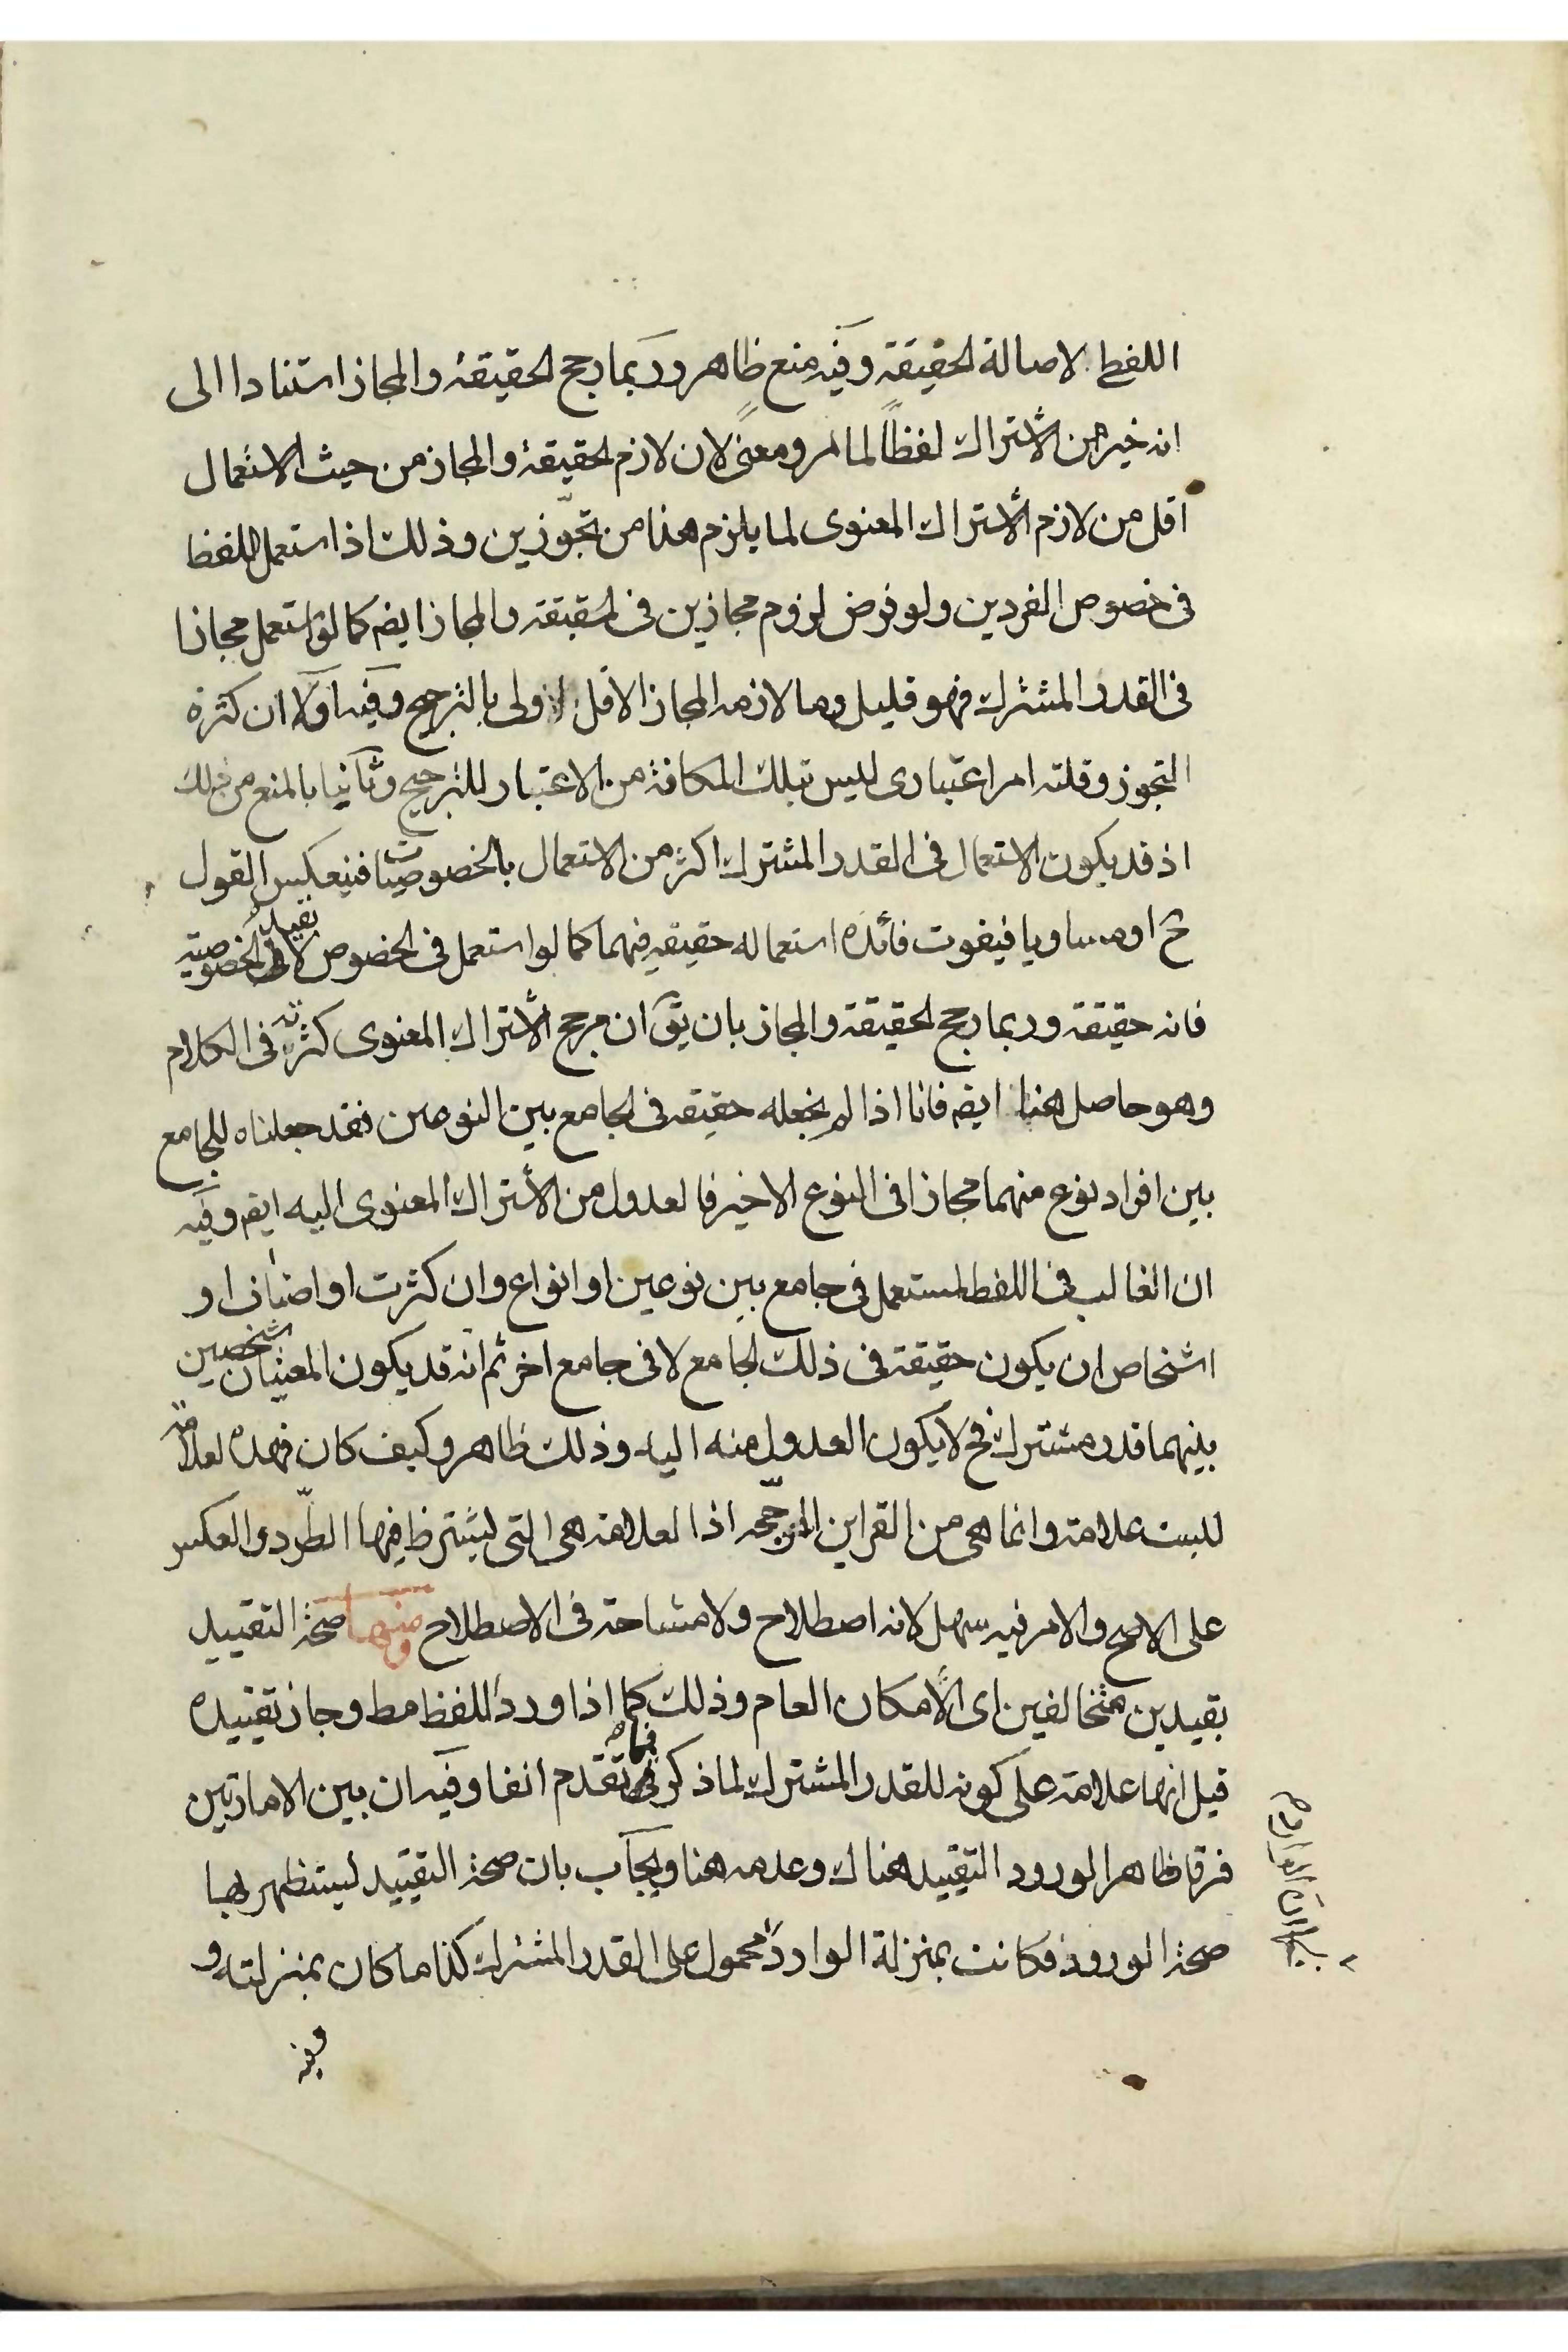 اللفظ لاصالة الحقيقة وفيه منع ظاهر وربما رجح الحقيقة والمجاز استنادا الى
انه خير من الاشتراك لفظاً لما مر ومعنىً لان لازم الحقيقة والمجاز من حيث الاستعمال
اقل من لازم الاشتراك المعنوى لما يلزم هذا من تجوّزين وذلك اذا استعمل اللفظ
فى خصوص الفردين ولو فرض لزوم مجازين فى الحقيقة والمجاز ايضم كما لو استعمل مجازا
فى القدر المشترك فهو قليل وما لازمه المجاز الاقل اولى بالترجيح وفيه اولا ان كثرة
التجوز وقلته امر اعتبارى ليس بتلك المكانة من الاعتبار للترجيح وثانيا بالمنع من ذلك
اذ قد يكون الاستعمال فى القدر المشترك اكثر من الاستعمال بالخصوصيات فينعكس القول
ح او مساويا فيفوت فائدة استعماله حقيقة فيهما كما لو استعمل فى الخصوص لا بقيد الخصوصية
فانه حقيقة وربما رجح الحقيقة والمجاز بان يقٓ ان مرجح الاشتراك المعنوى كثرته فى الكلام
وهو حاصل هنا ايضم فانا اذا لم نجعله حقيقة فى الجامع بين النوعين فقد جعلناه للجامع
بين افراد نوع منهما مجازا فى النوع الاخير فالعدول من الاشتراك المعنوى اليه ايضم وفيه
ان الغالب فى اللفظ المستعمل فى جامع بين نوعين او انواع وان كثرت او اصناف او
اشخاص ان يكون حقيقة فى ذلك الجامع لا فى جامع اخر ثم انه قد يكون المعنيان شخصين
بينهما قدر مشترك فح لا يكون العدول منه اليه وذلك ظاهر وكيف كان فهذه العلامة
ليست علامة وانما هى من القراين المرجّحه اذ العلامة هى التى يشترط فيها الطّرد والعكس
على الاصح والامر فيه سهل لانه اصطلاح ولا مشاحة فى الاصطلاح ومنها صحة التقييد
بقيدين متخالفين اى الامكان العام وذلك كما اذا ورد اللفظ مط وجاز تقييده
قيل انها علامة على كونه للقدر المشترك لما ذكر فيما تقدم انفا وفيه ان بين الامارتين
فرقا ظاهرا لورود التقييد هناك وعدمه هنا ويجاب بان صحة التقييد ليستظهر بها
صحة الورود فكانت بمنزلة الوارد محمول على القدر المشترك كذا ما كان بمنزلته و
وفيه